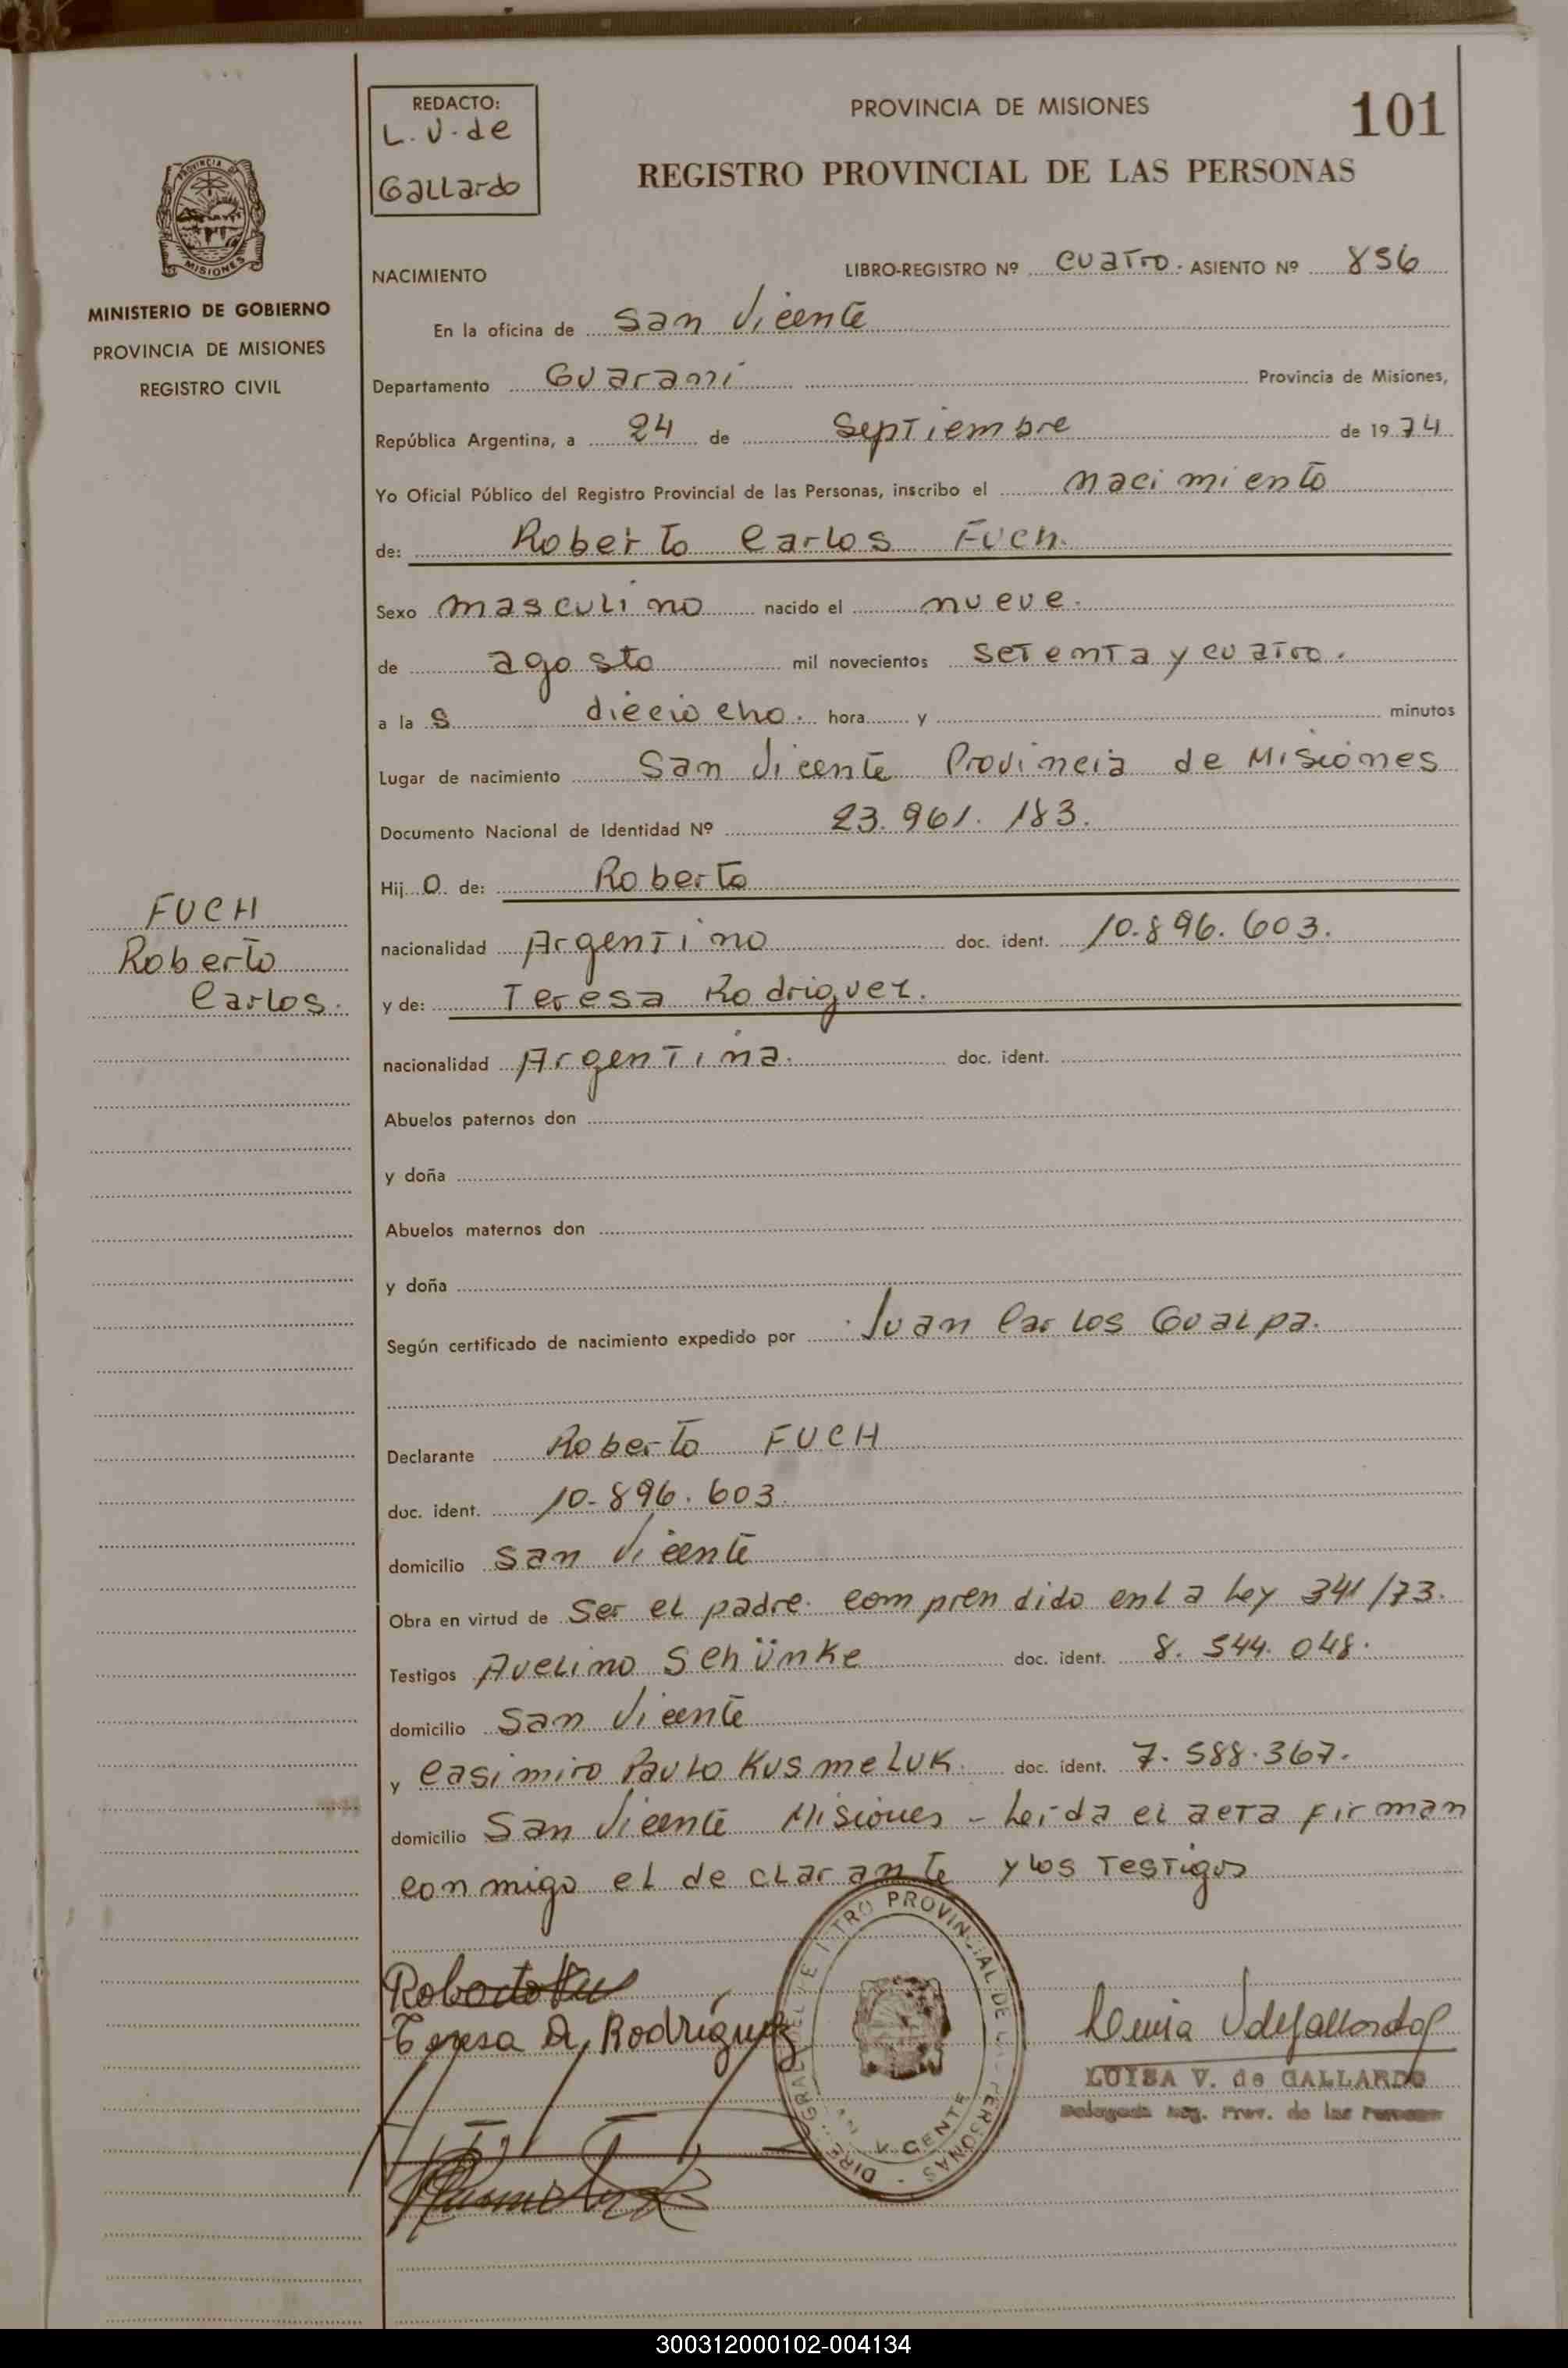 REDACTO:
L. V. de
Gallardo
PROVINCIA DE MISIONES
101
REGISTRO PROVINCIAL DE LAS PERSONAS
PROVINCIA DE
MISIONES
MINISTERIO DE GOBIERNO
PROVINCIA DE MISIONES
REGISTRO CIVIL
NACIMIENTO LIBRO-REGISTRO Nº cuatro. ASIENTO Nº 856
En la oficina de San Vicente
Departamento Guaraní Provincia de Misiones,
República Argentina, a 24 de Septiembre de 1974
Yo Oficial Público del Registro Provincial de las Personas, inscribo el nacimiento
de: Roberto Carlos Fuch.
Sexo masculino nacido el nueve.
de agosto mil novecientos setenta y cuatro.
a la s dieciocho. hora y minutos
Lugar de nacimiento San Vicente Provincia de Misiones
Documento Nacional de Identidad Nº 23.961.183.
Hij o de: Roberto
FUCH
Roberto
Carlos.
nacionalidad Argentino doc. ident. 10.896.603.
y de: Teresa Rodriguez.
nacionalidad Argentina. doc. ident.
Abuelos paternos don
y doña
Abuelos maternos don
y doña
Según certificado de nacimiento expedido por Juan Carlos Gualpa.
Declarante Roberto FUCH
doc. ident. 10-896.603.
domicilio San Vicente
Obra en virtud de ser el padre. comprendido en la Ley 341/73.
Testigos Avelino Schünke doc. ident. 8.544.048.
domicilio San Vicente
y Casimiro Paulo Kusmeluk. doc. ident. 7.588.367.
domicilio San Vicente Misiones - Leída el acta firman
conmigo el declarante y los testigos
Roberto
Teresa A, Rodríguez
LUISA V. de GALLARDO
Delegada Reg. Prov. de las Personas
300312000102-004134